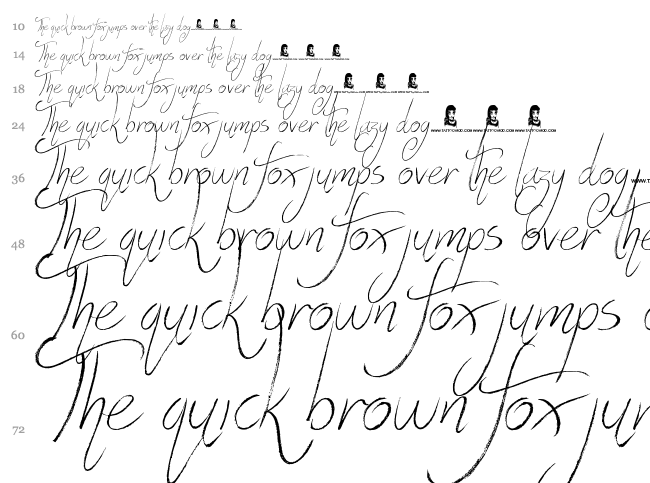 10 The quick brown fox jumps over the lazy dog
14 The quick brown fox jumps over the lazy dog
18 The quick brown fox jumps over the lazy dog
24 The quick brown fox jumps over the lazy dog
36 The quick brown fox jumps over the lazy dog
48 The quick brown fox jumps over the
60 The quick brown fox jumps
72 The quick brown fox jum